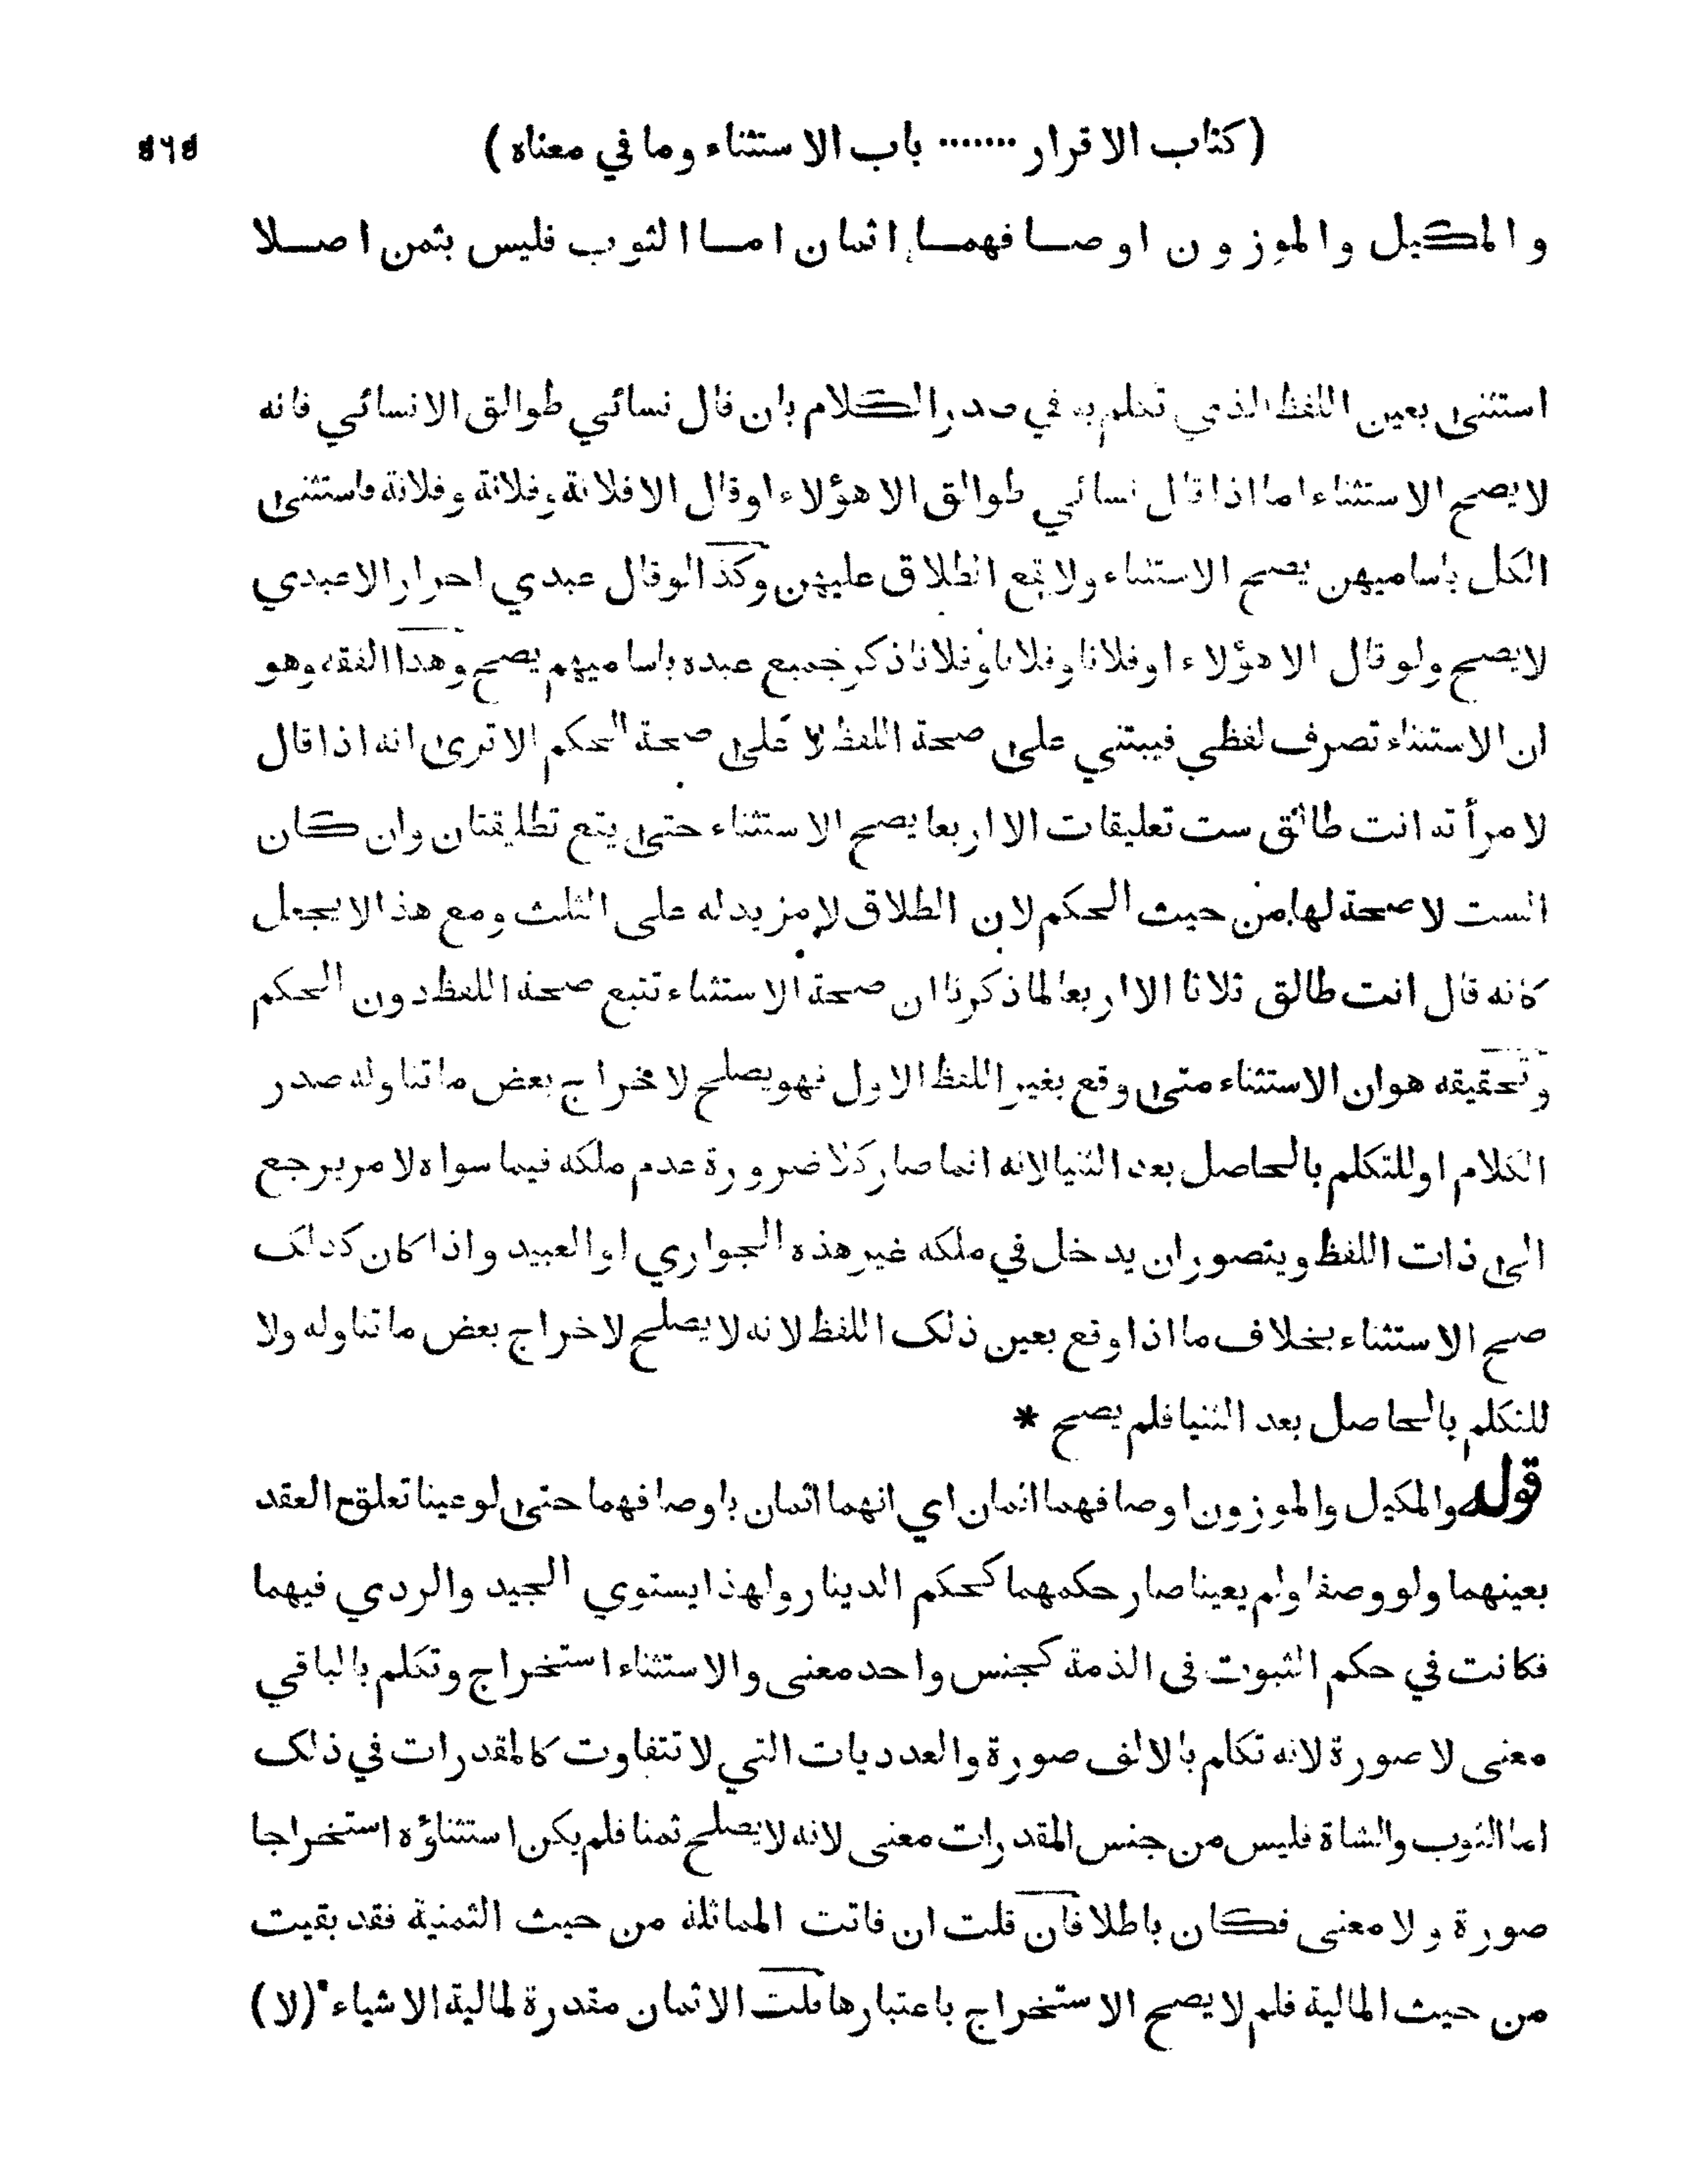 (كتاب الاقرار ······· باب الاستثناء وما في معناه)
والمكيل والموزون اوصافهما اثمان اما الثوب فليس بثمن اصلا
استثنى بعين اللفظ الذي تكلم به في صدر الكلام بان قال نسائي طوالق الا نسائي فانه
لا يصح الاستثناء اما اذا قال نسائي طوالق الا هؤلاء او قال الا فلانة وفلانة وفلانة فاستثنى
الكل باساميهن يصح الاستثناء ولا يقع الطلاق عليهن وكذا لو قال عبدي احرار الا عبدي
لا يصح ولو قال الا هؤلاء او فلانا وفلانا وفلانا ذكر جميع عبده باساميهم يصح وهذا الفقه وهو
ان الاستثناء تصرف لفظي فيبتني على صحة اللفظ لا على صحة الحكم الا ترى انه اذا قال
لامرأته انت طالق ست تعليقات الا اربعا يصح الاستثناء حتى يقع تطليقتان وان كان
الست لا صحة لها من حيث الحكم لان الطلاق لا مزيد له على الثلث ومع هذا لا يجعل
كانه قال انت طالق ثلاثا الا اربعا لما ذكرنا ان صحة الاستثناء تتبع صحة اللفظ دون الحكم
وتحقيقه هو ان الاستثناء متى وقع بغير اللفظ الاول فهو يصلح لاخراج بعض ما تناوله صدر
الكلام او للتكلم بالحاصل بعد الثنيا لانه انما صار كلا ضرورة عدم ملكه فيما سواه لا مر يرجع
الى ذات اللفظ ويتصور ان يدخل في ملكه غير هذه الجواري او العبيد واذا كان كذلك
صح الاستثناء بخلاف ما اذا وقع بعين ذلك اللفظ لانه لا يصلح لاخراج بعض ما تناوله ولا
للتكلم بالحاصل بعد الثنيا فلم يصح *
قوله والمكيل والموزون اوصافهما اثمان اي انهما اثمان باوصافهما حتى لو عينا تعلق العقد
بعينهما ولو وصفا ولم يعينا صار حكمهما كحكم الدينار ولهذا يستوي الجيد والردي فيهما
فكانت في حكم الثبوت في الذمة كجنس واحد معنى والاستثناء استخراج وتكلم بالباقي
معنى لا صورة لانه تكلم بالالف صورة والعدديات التي لا تتفاوت كالمقدرات في ذلك
اما الثوب والشاة فليس من جنس المقدرات معنى لانه لا يصلح ثمنا فلم يكن استثناؤه استخراجا
صورة ولا معنى فكان باطلا فان قلت ان فاتت المماثلة من حيث الثمنية فقد بقيت
من حيث المالية فلم لا يصح الاستخراج باعتبارها قلت الاثمان مقدرة لمالية الاشياء (لا)